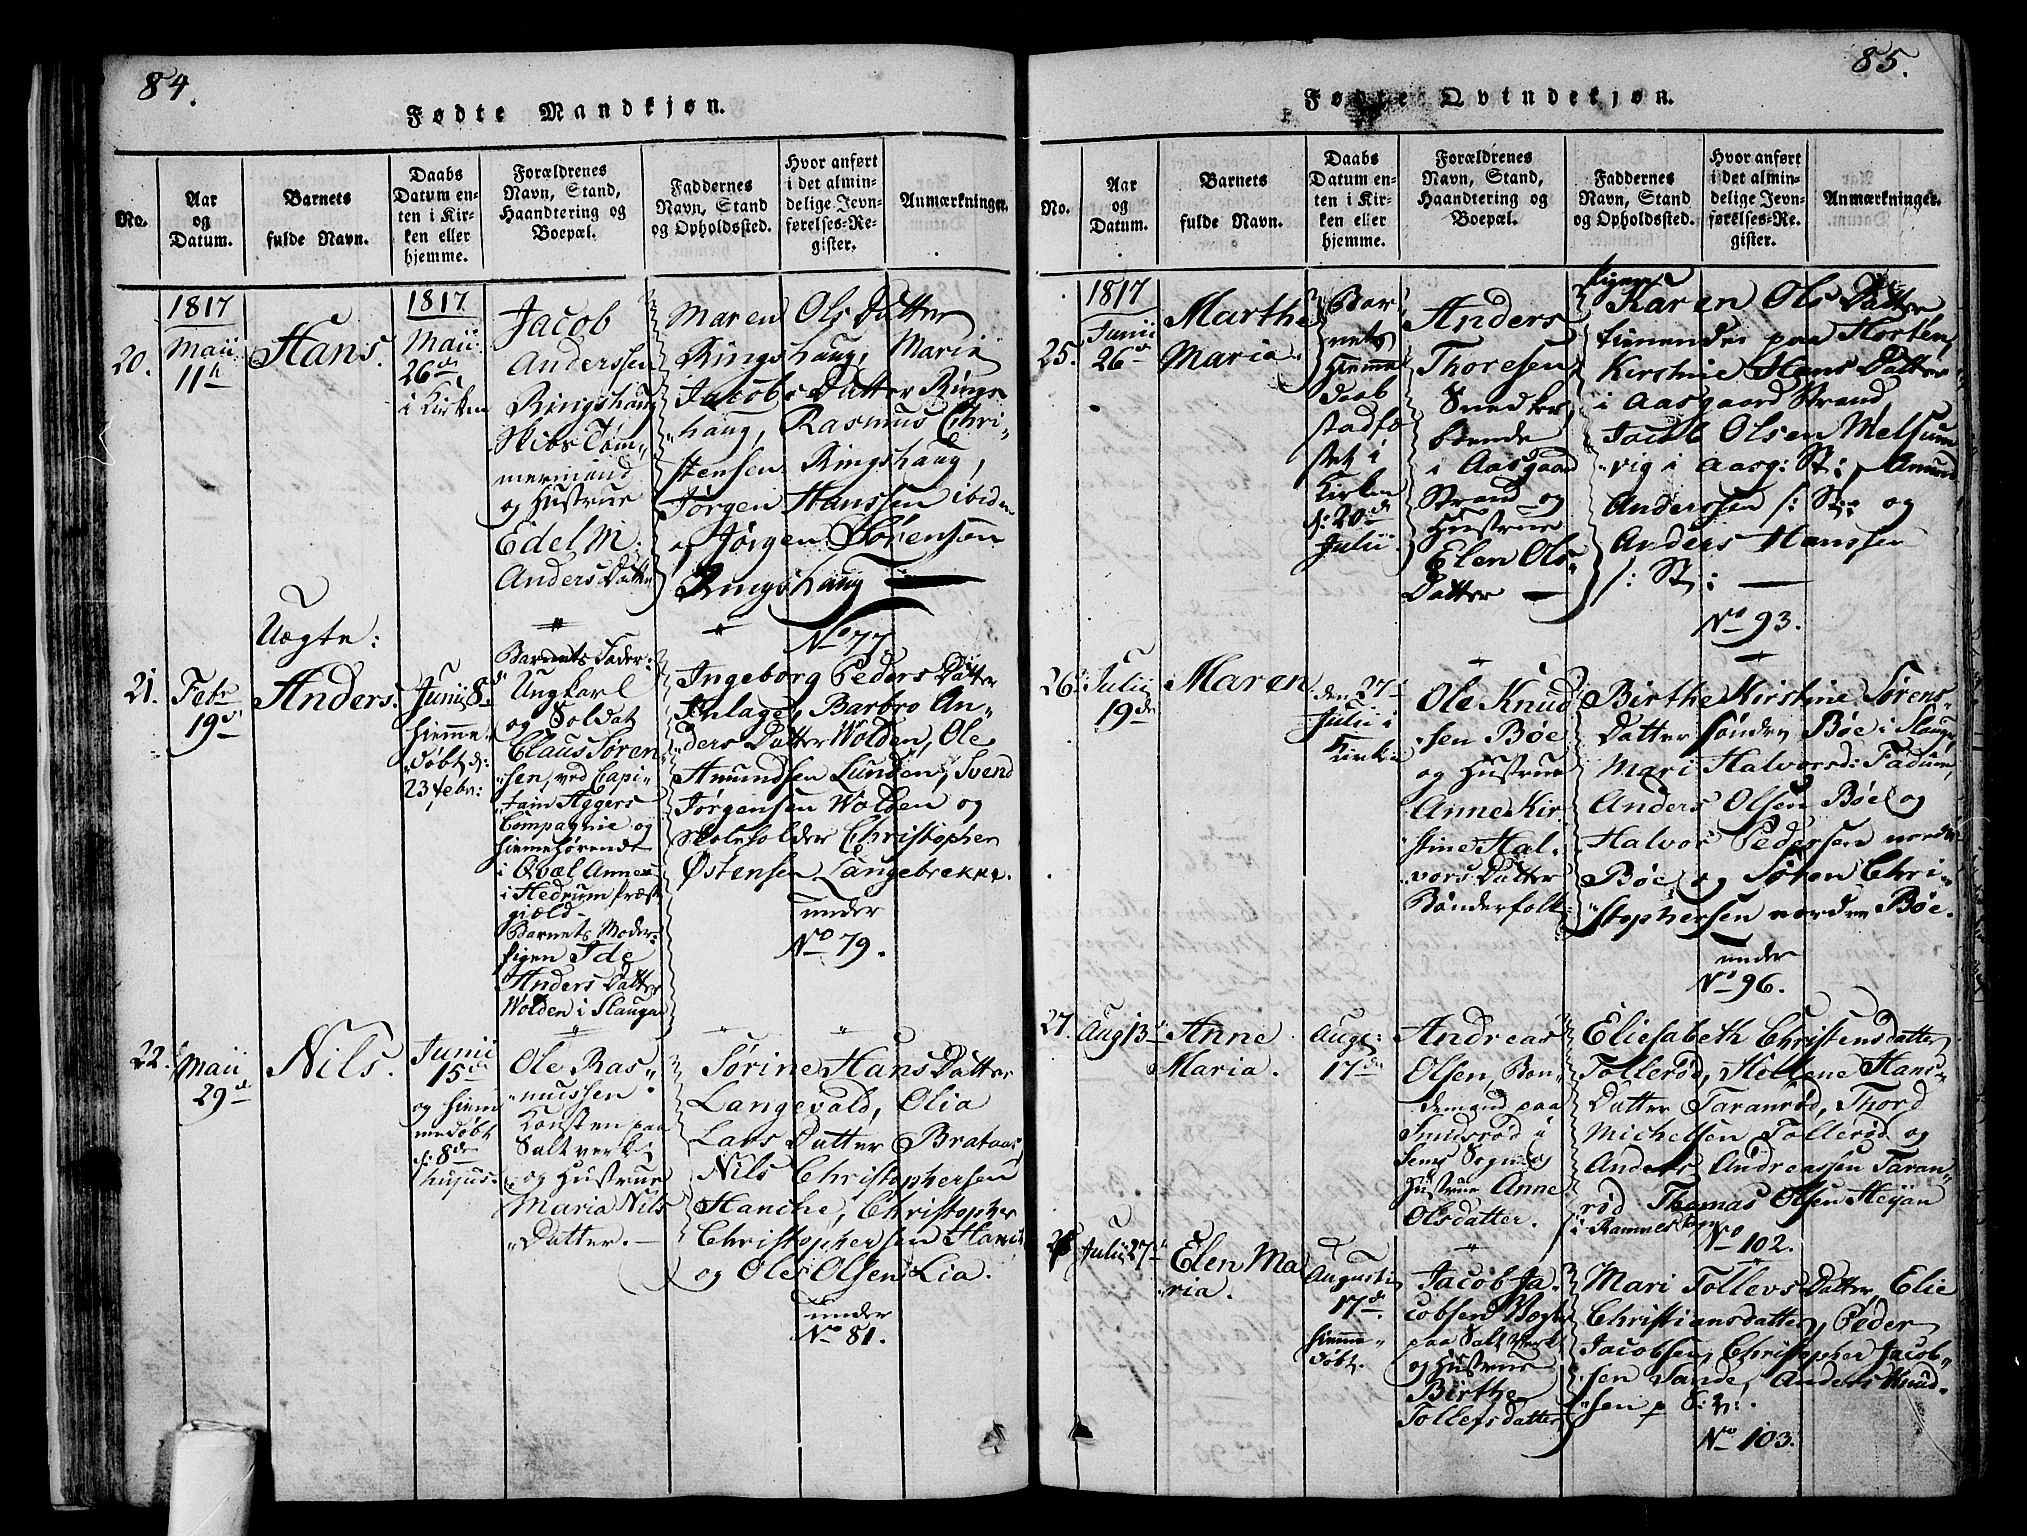 84.
Fødte Mandkjøn.
No.
Aar
og
Datum.
Barnets
fulde Navn.
Daabs
Datum en-
ten i Kir-
ken eller
hjemme.
Forældrenes
Navn, Stand,
Haandtering og
Boepæl.
Faddernes
Navn, Stand
og Opholdssted.
Hvor anført
i det almin-
delige Jevn-
førelses-Re-
gister.
Anmærkninger.
20.
1817
Maii
11te
Hans.
1817
Maii
26de
i Kirken
Jacob
Anderssen
Ringshaug
Skibs Tøm-
mermand
og Hustrue
Edel M:
Anders Datter
Maren Ols Datter
Ringshaug, Marie
Jacobs Datter Rings
haug, Rasmus Chri-
stensen Ringshaug,
Jørgen Hanssen ibidem
og Jørgen Sørensen
Ringshaug
No 77
21.
Febr
19de
Uægte:
Anders.
Junii 8de
hiemme-
døbt d:
23 febr:
Barnets Fader:
Ungkarl
og Soldat
Claus Søren
sen, ved Capi-
tain Aggers
Compagnie og
hiemhørende
i Qvæl Annex
i Hedrum Præste
giæld-
Barnets Moder:
Pigen Ide
Anders Datter
Wolden i Slaugen
Ingeborg Peders Datter
Inlage, Barbro An-
ders Datter Wolden, Ole
Amundsen Lunden, Svend
Jørgensen Wolden og
Skoleholder Christopher
Østensen Langebrekke.
under
No 79.
22.
Maii
29de
Nils.
Junii
15de
og hiem
medøbt
d: 8de
hujus.
Ole Ras-
mussen
Konsten paa
Saltverket
og Hustrue
Maria Nils
Datter.
Sørine Hans Datter
Langevald, Olia
Lars Datter Brataas
Nils Christophersen
Hanche, Christopher
Christophersen Hanche
og Ole Olsen Lia.
under
No 81.
85.
Fødte Qvindekjøn.
No.
Aar
og
Datum.
Barnets
fulde Navn.
Daabs
Datum en-
ten i Kir-
ken eller
hjemme.
Forældrenes
Navn, Stand,
Haandtering og
Boepæl.
Faddernes
Navn, Stand
og Opholdssted.
Hvor anført
i det almin-
delige Jevn-
førelses-Re-
gister.
Anmærkninger.
25.
1817
Junii
26de
Marthe
Maria.
Bar-
nets
Hiemme
daab
stadfæ
stet i
Kirken
d: 20de
Julii.
Anders
Thoresen
Snedker
boende
i Aasgaard
Strand og
Hustrue
Elen Ols-
Datter
Pigen
Karen Ols Datter
tienende paa Horten,
Kirstine Hans Datter
i Aasgaard Strand,
Jacob Olsen Melsum
vig i Aasg: St:, Amund
Anderssen /: St: og
Anders Hanssen
/: St:
No 93.
26.
Julii
19de
Maren
den 27de
Julii i
Kirken
Ole Knud
sen Bøe
og Hustrue
Anne Kir
stine Hal-
vors Datter
Bønderfolk
Birthe Kirstine Sørens-
Datter søndre Bøe i Slaugen,
Mari Halvorsd: Fadum,
Anders Olsen Bøe og
Halvor Pedersen nordre
Bøe og Søren Chri-
stophersen nordre Bøe.
under
No 96.
27.
Aug 13de
Anne
Maria.
Aug:
17de
Andreas
Olsen, Bon-
demand paa
Smidsrød i
Sems Sogn og
Hustrue Anne
Olsdatter.
Eliesabeth Christensdatter
Tollerød, Hellene Hans-
Datter Taranrød, Thord
Michelsen Tollerød og
Anders Andreassen Taran-
rød Thomas Olsen Heyan
i Ramnes
No 102.
28
Julii 27de
Elen Ma
ria.
Augusti
17de
hiemme-
døbt.
Jacob Ja-
cobsen Vogter
paa Saltverket
og Hustrue
Birthe
Tollefsdatter
Mari Tollevs Datter, Elie
Christiansdatter, Peder
Jacobsen, Christopher Jacob-
sen Sande, Anders Knud-
sen p S: V:.
No 103.